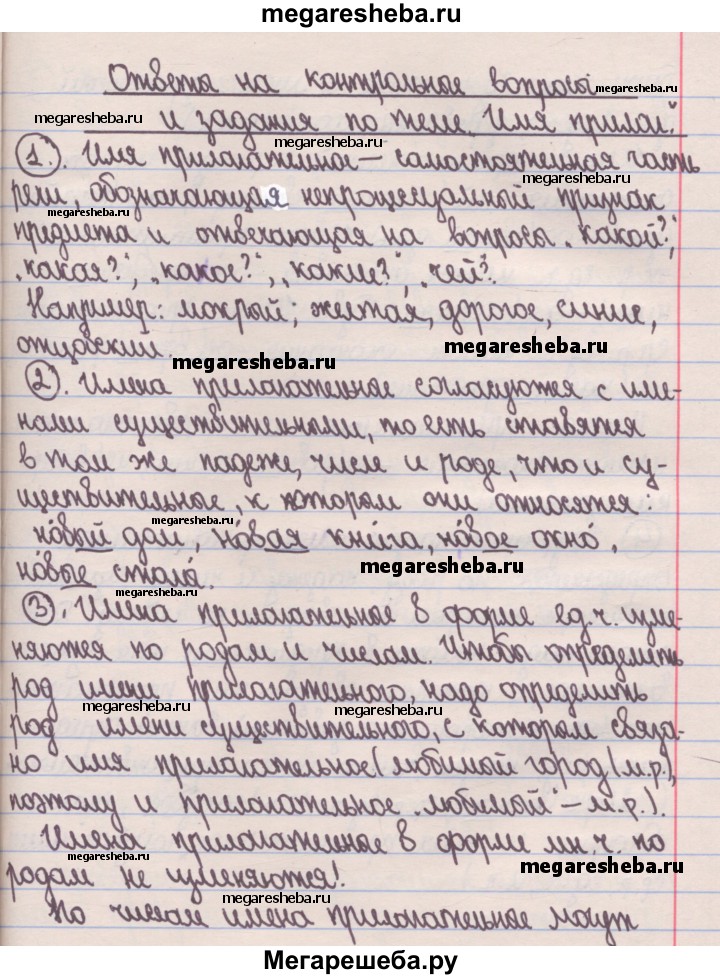 megaresheba.ru
Ответы на контрольные вопросы
megaresheba.ru
megaresheba.ru
и задания по теме „Имя прилаг."
megaresheba.ru
1. Имя прилагательное — самостоятельная часть
речи, обозначающая непроцессуальный признак
megaresheba.ru
megaresheba.ru
предмета и отвечающая на вопросы „какой?",
„какая?", „какое?", „какие?", „чей?".
Например: мокрый, желтая, дорогое, синие,
отцовский.
megaresheba.ru
megaresheba.ru
2. Имена прилагательные согласуются с име-
нами существительными, то есть ставятся
в том же падеже, числе и роде, что и су-
ществительные, к которым они относятся:
megaresheba.ru
но́вый дом, но́вая кни́га, но́вое окно́,
но́вые столы́.
megaresheba.ru
megaresheba.ru
3. Имена прилагательные в форме ед.ч. изме-
няются по родам и числам. Чтобы определить
род имени прилагательного, надо определить
megaresheba.ru
megaresheba.ru
род имени существительного, с которым связа-
но имя прилагательное (любимый город (м.р.),
поэтому и прилагательное „любимый" – м.р.).
Имена прилагательные в форме мн.ч. по
megaresheba.ru
megaresheba.ru
родам не изменяются!
megaresheba.ru
По числам имена прилагательные могут
megaresheba.ru
Мегарешеба.ру